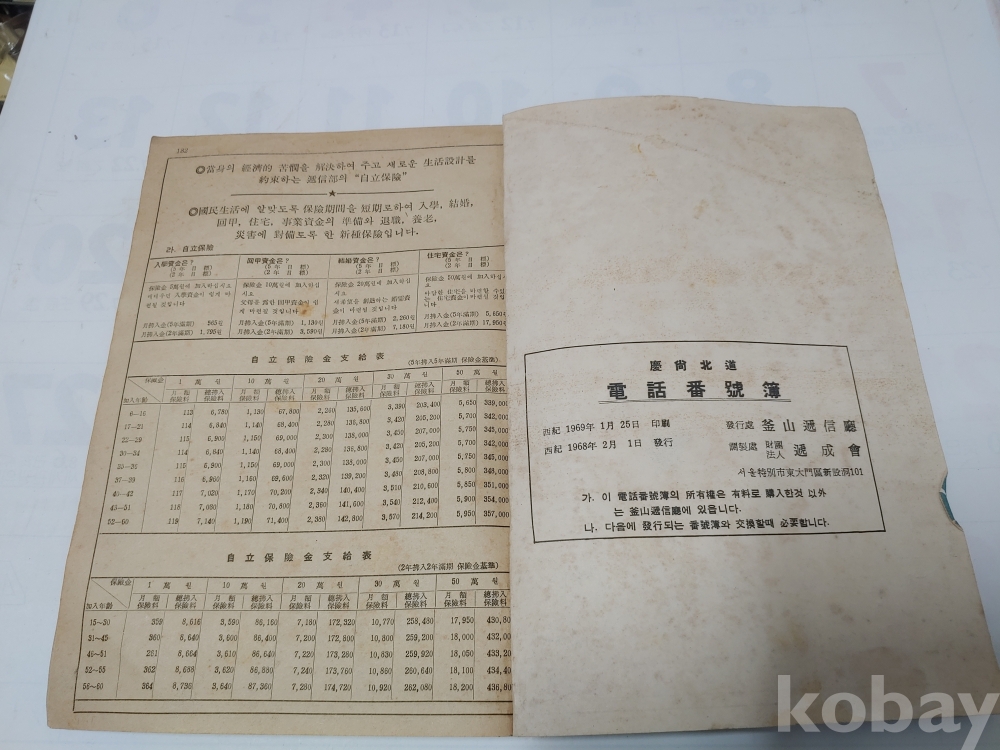 192
◎當身의 經濟的 苦憫을 解決하여 주고 새로운 生活設計를
約束하는 遞信部의 “自立保險”
★
◎國民生活에 알맞도록 保險期間을 短期로하여 入學, 結婚,
回甲, 住宅, 事業資金의 準備와 退職, 養老,
災害에 對備도록 한 新種保險입니다.
라. 自立保險
入學資金은? 回甲資金은? 結婚資金은? 住宅資金은?
(5年目標) (5年目標) (5年目標) (5年目標)
(2年目標) (2年目標) (2年目標) (2年目標)
月拂入金(5年滿期) 565원 月拂入金(5年滿期) 1,130원 月拂入金(5年滿期) 2,260원 月拂入金(5年滿期) 5,650
月拂入金(2年滿期) 1,795원 月拂入金(2年滿期) 3,590원 月拂入金(2年滿期) 7,180원 月拂入金(2年滿期) 17,950
自立保險金支給表
(5年拂入5年滿期 保險金基準)
保險金 1萬원 10萬원 20萬원 30萬원 50萬원
加入年齡 月額保險料 總拂入保險料 月額保險料 總拂入保險料 月額保險料 總拂入保險料 月額保險料 總拂入保險料 月額保險料 總拂入保險料
6—16 113 6,780 1,130 67,800 2,260 135,600 3,390 203,400 5,650 339,000
17—21 114 6,840 1,140 68,400 2,280 136,800 3,420 205,200 5,700 342,000
22—29 115 6,900 1,150 69,000 2,300 138,000 3,450 207,000 5,750 345,000
30—34 114 6,840 1,140 68,400 2,280 136,800 3,420 205,200 5,700 342,000
115 6,900 1,150 69,000 2,300 138,000 3,450 207,000 5,750 345,000
37—39 116 6,960 1,160 69,600 2,320 139,200 3,480 208,800 5,800 348,000
40—42 117 7,020 1,170 70,200 2,340 140,400 3,510 210,600 5,850 351,000
43—51 118 7,080 1,180 70,800 2,360 141,600 3,540 212,400 5,900 354,000
52—60 119 7,140 1,190 71,400 2,380 142,800 3,570 214,200 5,950 357,000
自立保險金支給表
(2年拂入2年滿期 保險金基準)
保險金 1萬원 10萬원 20萬원 30萬원 50萬원
加入年齡 月額保險料 總拂入保險料 月額保險料 總拂入保險料 月額保險料 總拂入保險料 月額保險料 總拂入保險料 月額保險料 總拂入保險料
15~30 359 8,616 3,590 86,160 7,180 172,320 10,770 258,480 17,950 430,80
31~45 360 8,640 3,600 86,400 7,200 172,800 10,800 259,200 18,000 432,00
46~51 261 8,664 3,610 86,640 7,220 173,280 10,830 259,920 18,050 433,20
52~55 362 8,688 3,620 86,880 7,240 173,760 10,860 260,640 18,100 434,40
56~60 364 8,736 3,640 87,360 7,280 174,720 10,920 262,080 18,200 436,80
慶尙北道
電話番號簿
西紀 1969年 1月 25日 印刷 發行處 釜山遞信廳
西紀 1968年 2月 1日 發行 調製處 財團法人 遞成會
서울特別市東大門區新設洞101
가. 이 電話番號簿의 所有權은 有料로 購入한것 以外
는 釜山遞信廳에 있읍니다.
나. 다음에 發行되는 番號簿와 交換할때 必要합니다.
kobay